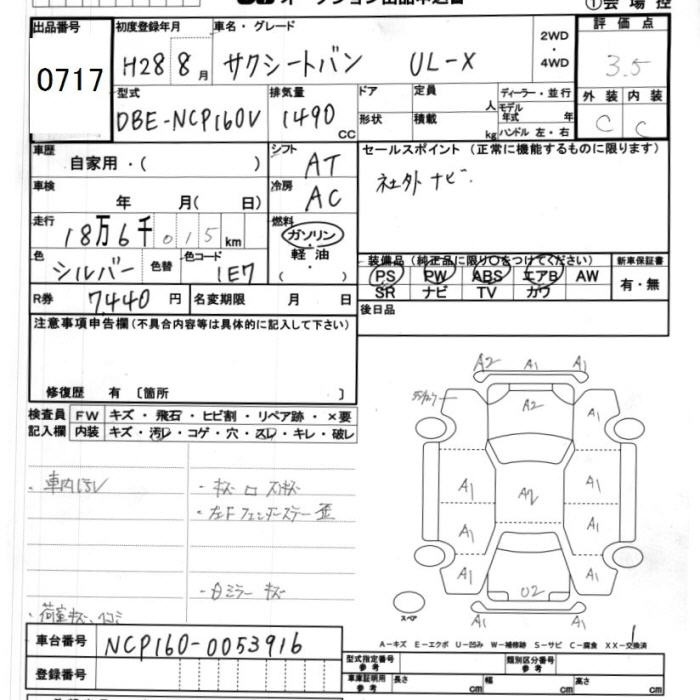 オークション出品申込書 ①会場控
出品番号 初度登録年月 車名・グレード 評価点
0717 H28 8月 サクシートバン UL-X 2WD・4WD 3.5
型式 排気量 ドア 定員 人 ディーラー・並行 外装 内装
DBE-NCP160V 1490 CC 形状 積載 kg モデル年式 年 ハンドル 左・右 C C
車歴 自家用・( ) シフト AT セールスポイント(正常に機能するものに限ります)
車検 年 月( 日) 冷房 AC 社外ナビ.
走行 18万6千015km 燃料 ガソリン・軽油・( )
色 シルバー 色替 色コード 1E7 装備品(純正品に限り○をつけてください) 新車保証書
PS PW ABS エアB AW 有・無
R券 7,440円 名変期限 月 日 SR ナビ TV カワ
注意事項申告欄(不具合内容等は具体的に記入して下さい) 後日品
修復歴 有 〔箇所 〕
検査員 FW キズ・飛石・ヒビ割・リペア跡・×要
記入欄 内装 キズ・汚レ・コゲ・穴・スレ・キレ・破レ
A2 A1 A1
A2 A1
・車内 A1 A1
・左Fフェンダーステー A2
A1 A1
・ミラーキズ A1 U2 A1
スペア A1 A1
・荷室キズ、
A-キズ E-エクボ U-凹み W-補修跡 S-サビ C-腐食 XX-交換済
車台番号 NCP160-0053916
型式指定番号 参考 類別区分番号 参考
登録番号 車庫証明用 参考 長さ cm 幅 cm 高さ cm